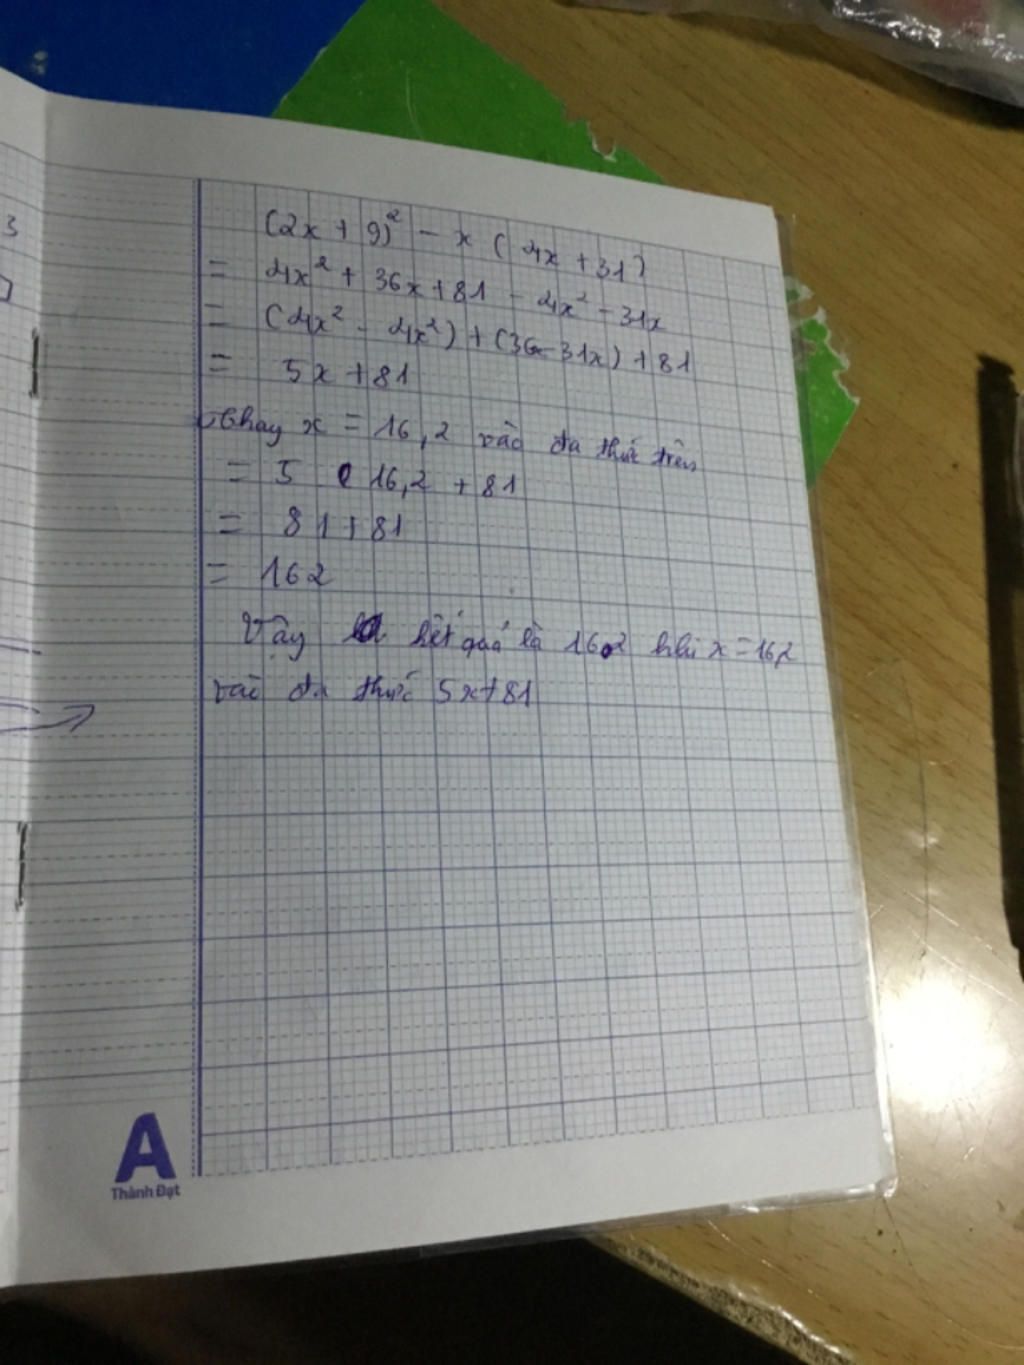 3
(2x + 9)² - x ( 4x + 31)
= 4x² + 36x + 81 - 4x² - 31x
= (4x² - 4x²) + (36x - 31x) + 81
= 5x + 81
Thay x = 16,2 vào đa thức trên
= 5 . 16,2 + 81
= 81 + 81
= 162
Vậy kết quả là 162 khi x = 16,2
vào đa thức 5x + 81
A
Thành Đạt